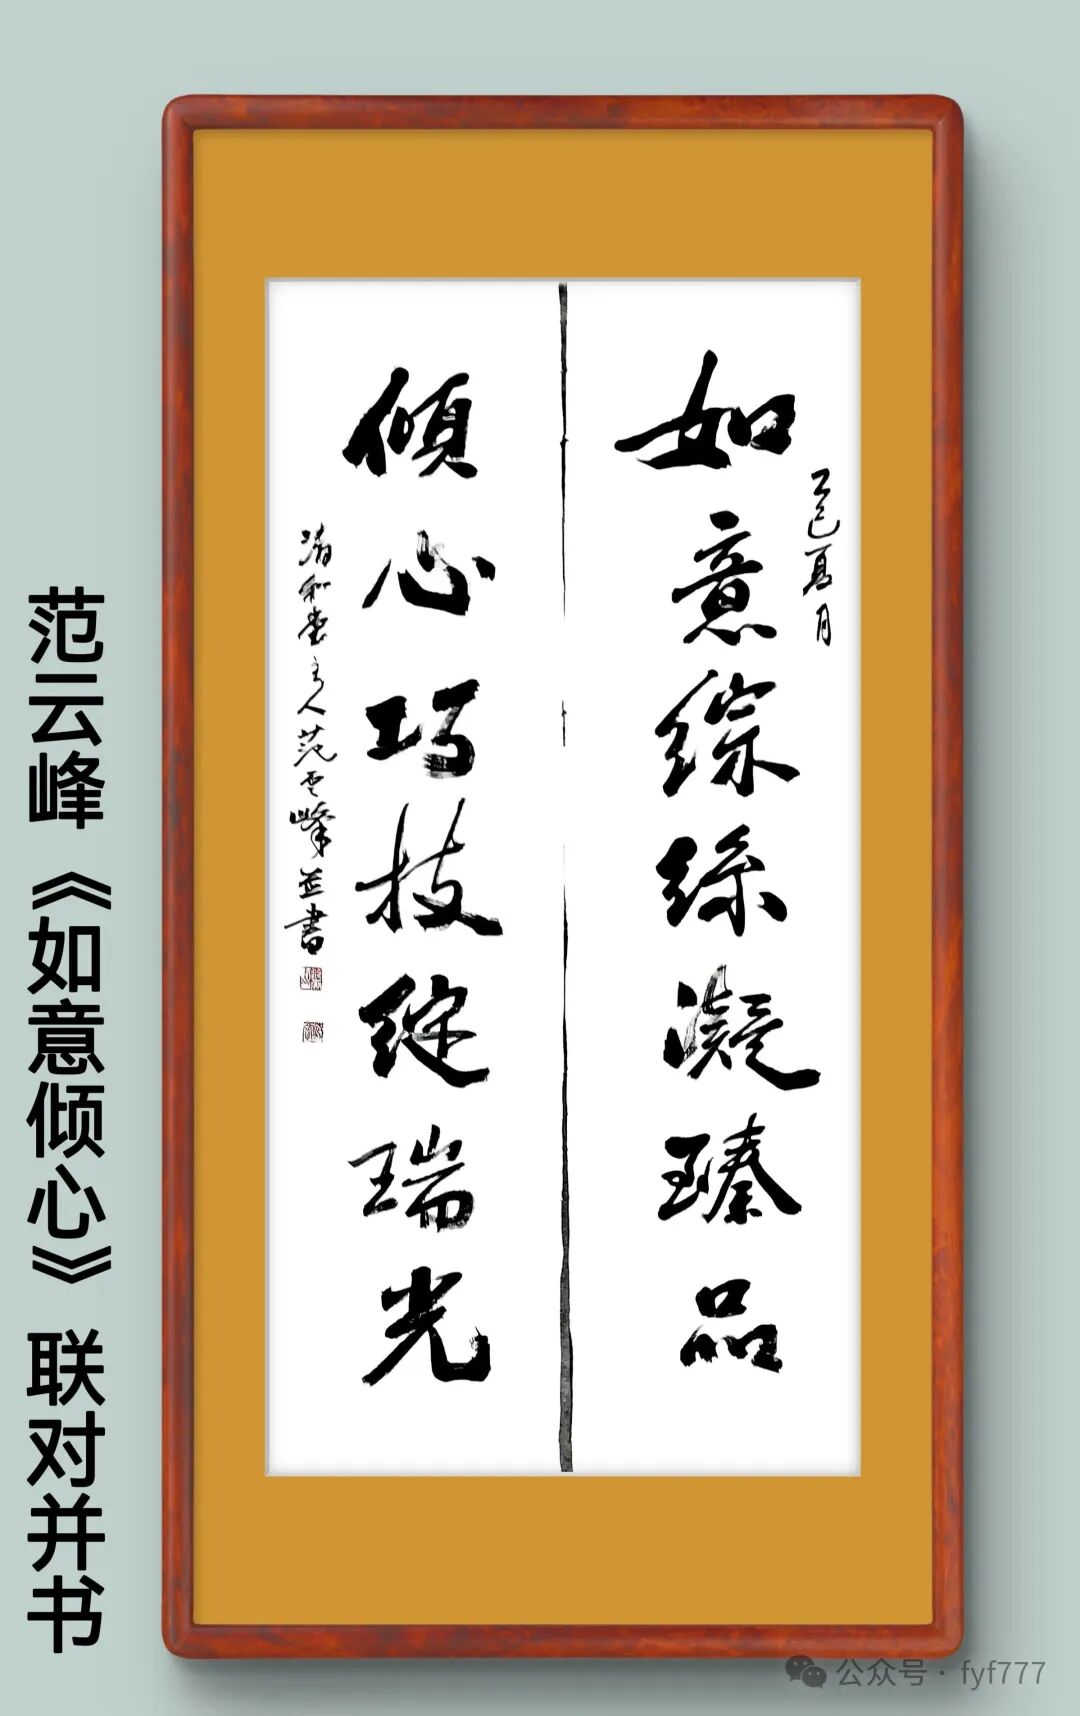 乙巳夏月
如意综丝凝臻品
倾心巧技绽瑞光
清和堂主人范云峰并書
范云峰《如意倾心》联对并书
公众号·fyf777